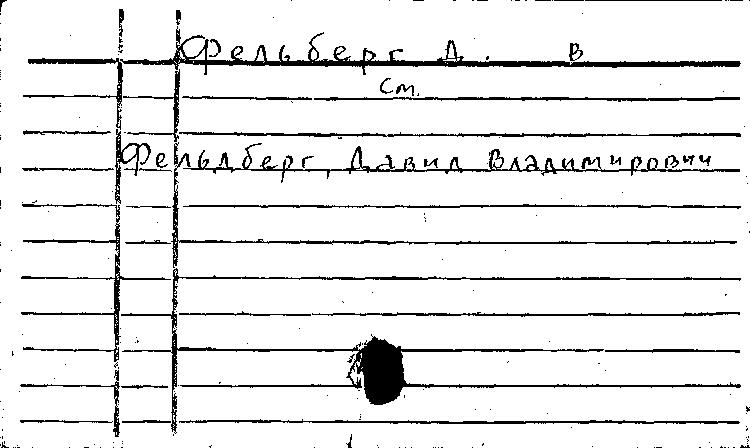 Фельберг Д. В
см.
Фельдберг, Давид Владимирович